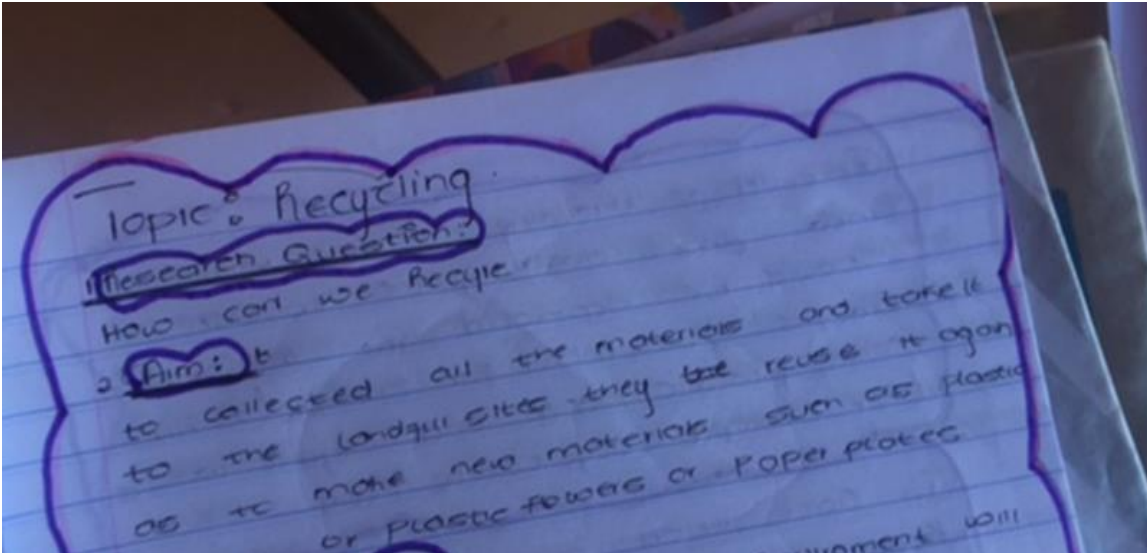 Topic: Recycling
1 Research Question:
How can we Recycle
2 Aim: t
to collected all the materials and take it
to the landfill sites they the reuse it again
as to make new materials such as plastic
or plastic flowers or Paper plates
will